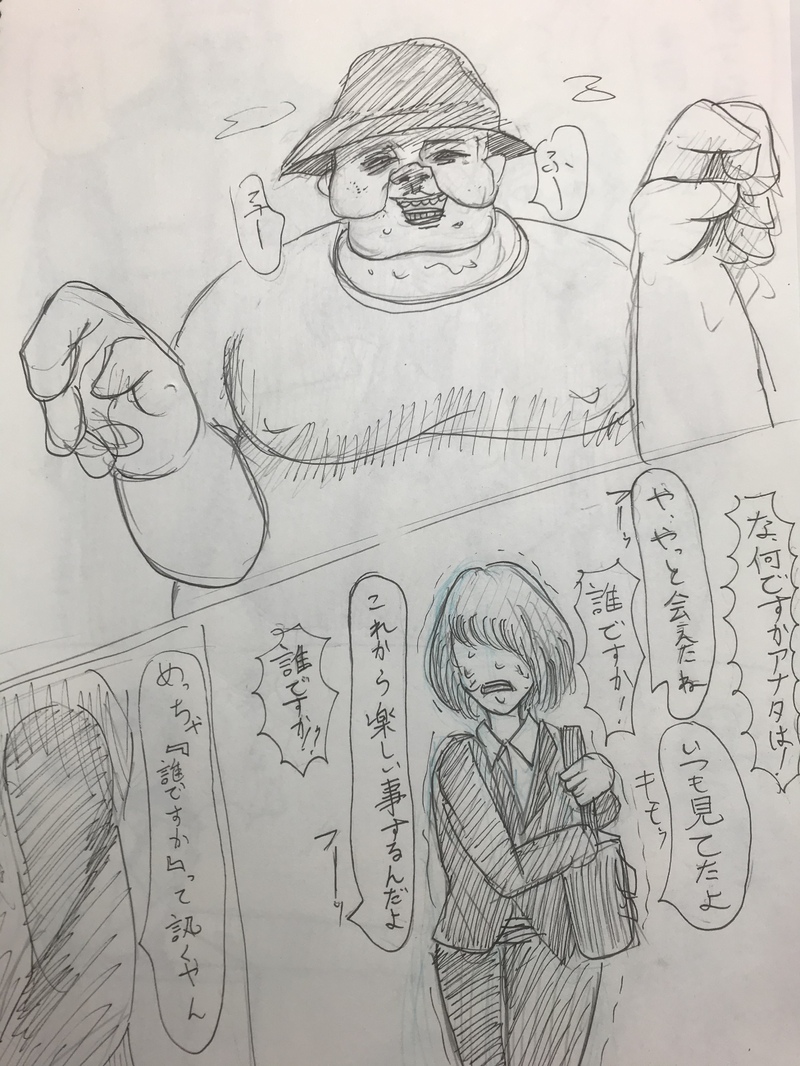 ふー
ふー
な、何ですかアナタは!
や、やっと会えたね
フーッ
いつも見てたよ
キモッ
誰ですか!
これから楽しい事するんだよ
フーーッ
誰ですか!!
めっちゃ『誰ですか』って訊くやん